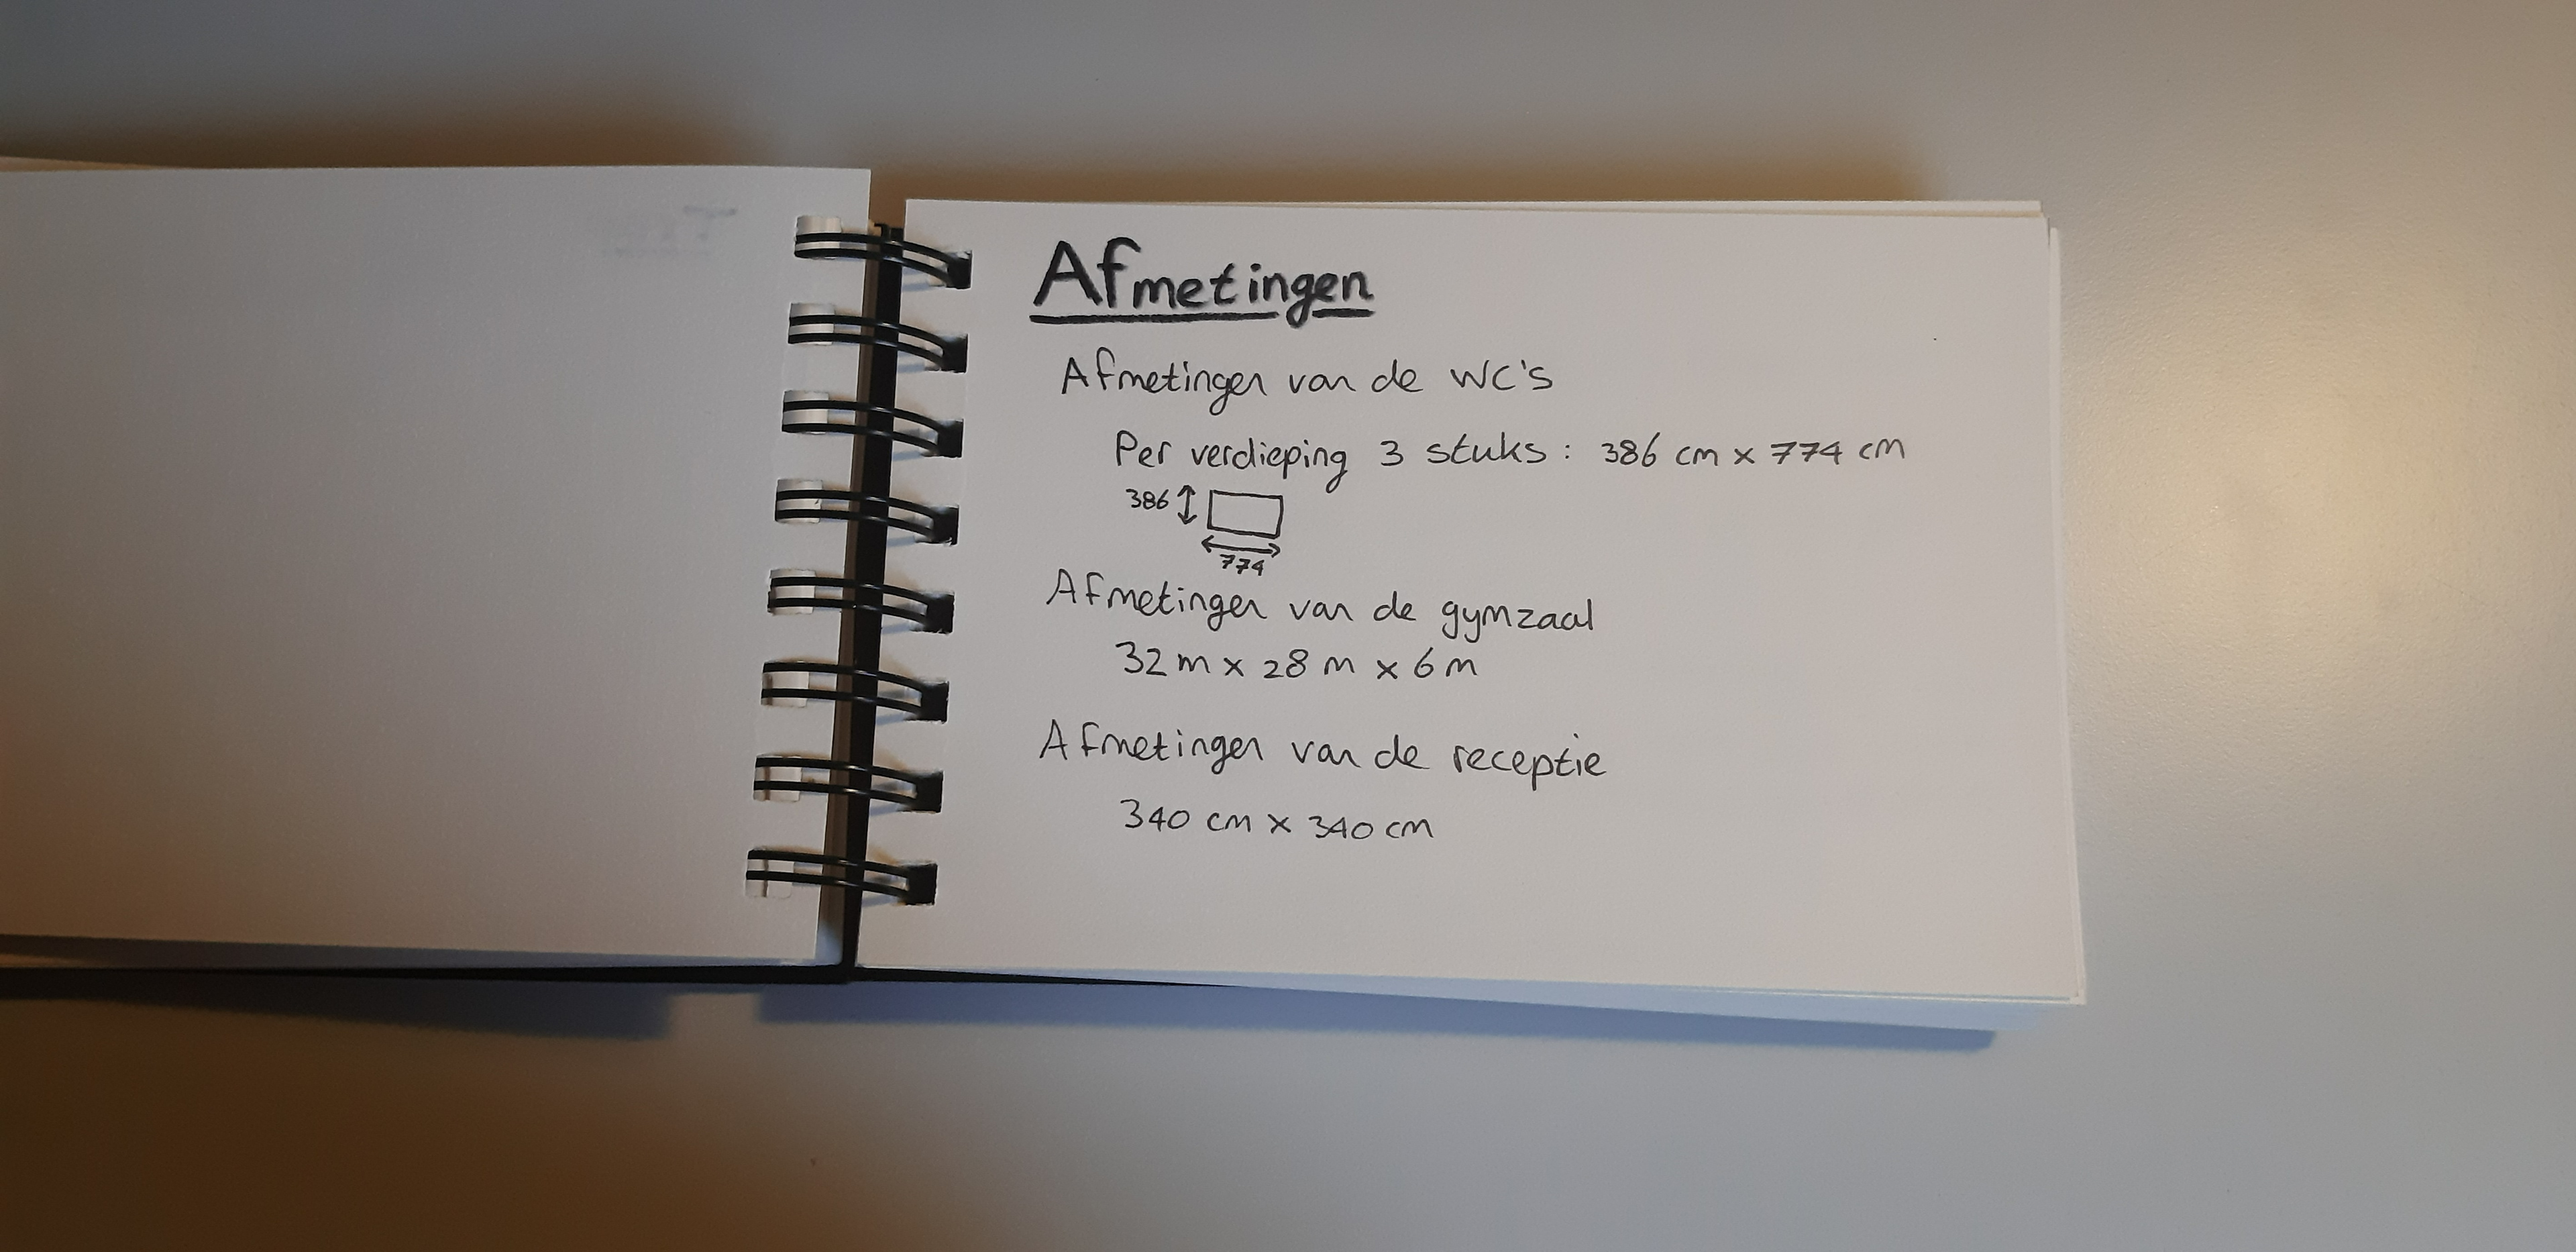 Afmetingen
Afmetingen van de WC's
Per verdieping 3 stuks: 386 cm x 774 cm
386
774
Afmetingen van de gymzaal
32 m x 28 m x 6 m
Afmetingen van de receptie
340 cm x 340 cm